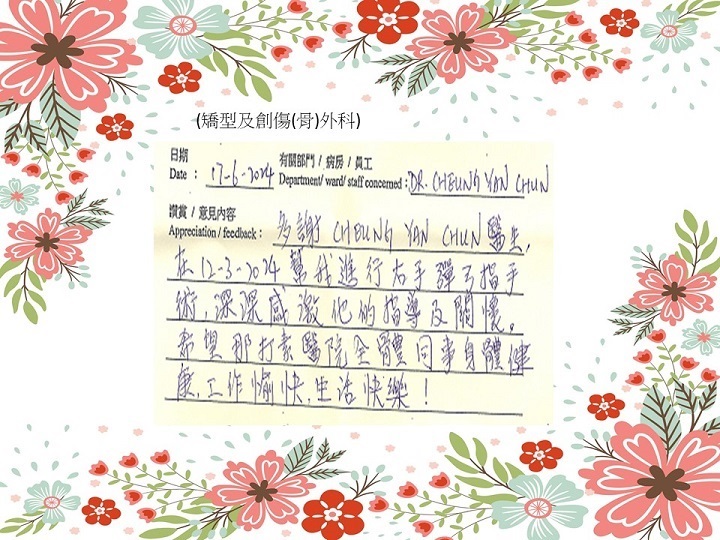 (矯型及創傷(骨)外科)
日期 有關部門 / 病房 / 員工
Date : 17-6-2024 Department/ ward/ staff concerned : DR. CHEUNG YAN CHUN
讚賞 / 意見內容
Appreciation / feedback : 多謝 CHEUNG YAN CHUN 醫生,
在 12-3-2024 幫我進行右手彈弓指手
術,深深感激他的指導及關懷。
希望那打素醫院全體同事身體健
康,工作愉快,生活快樂!